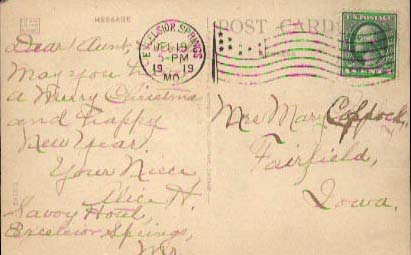 MESSAGE
POST CARD
EXCELSIOR SPRINGS
DEC 19
-PM
1919
MO.
Dear Aunt,
May you
a Merry Christmas
and Happy
New Year.
Your Niece
Alice H.
Savoy Hotel,
Excelsior Springs,
Mo.
Mrs Mary Coppock,
Fairfield,
Iowa.